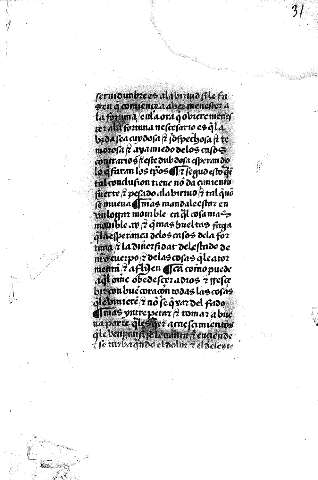 31
seruidunbre es a la virtud si le fa
zen q̃ comiençe a aber menester a
la fortuna, en la ora q̃ obiere menes
ter a la fortuna nesçesario es q̃ la
bida sea cuydosa & sospechosa & te
morosa & aya miedo de los casos
contrarios & este dubdosa esperando
lo q̃ faran los tpõs ¶ & segud esto q̃
tal conclusion tiene no da çimiento
fuerte & pesado a la virtud & tal q̃ no
se mueua ¶ mas mandale estar en
vn logar mouible en q̃l cosa mas
mouible ay, & q̃ mas bueltas faga
q̃ la esperança de los casos de la for
tuna & la diuersidat del estado de
nro cuerpo & de las cosas q̃ le ator
mentã & afligen ¶ ca como puede
q̃l ome obedesçer a dios &
bir con bue coraçon todas las cosas
q̃ le vinierẽ & no se q̃xar del fado
¶ mas yntrepetar & tomar a bue
na parte q̃lesq̃er acaesçimientos
q̃ le vengan si se &
& se turba q̃ndo el dolor & el deleyte